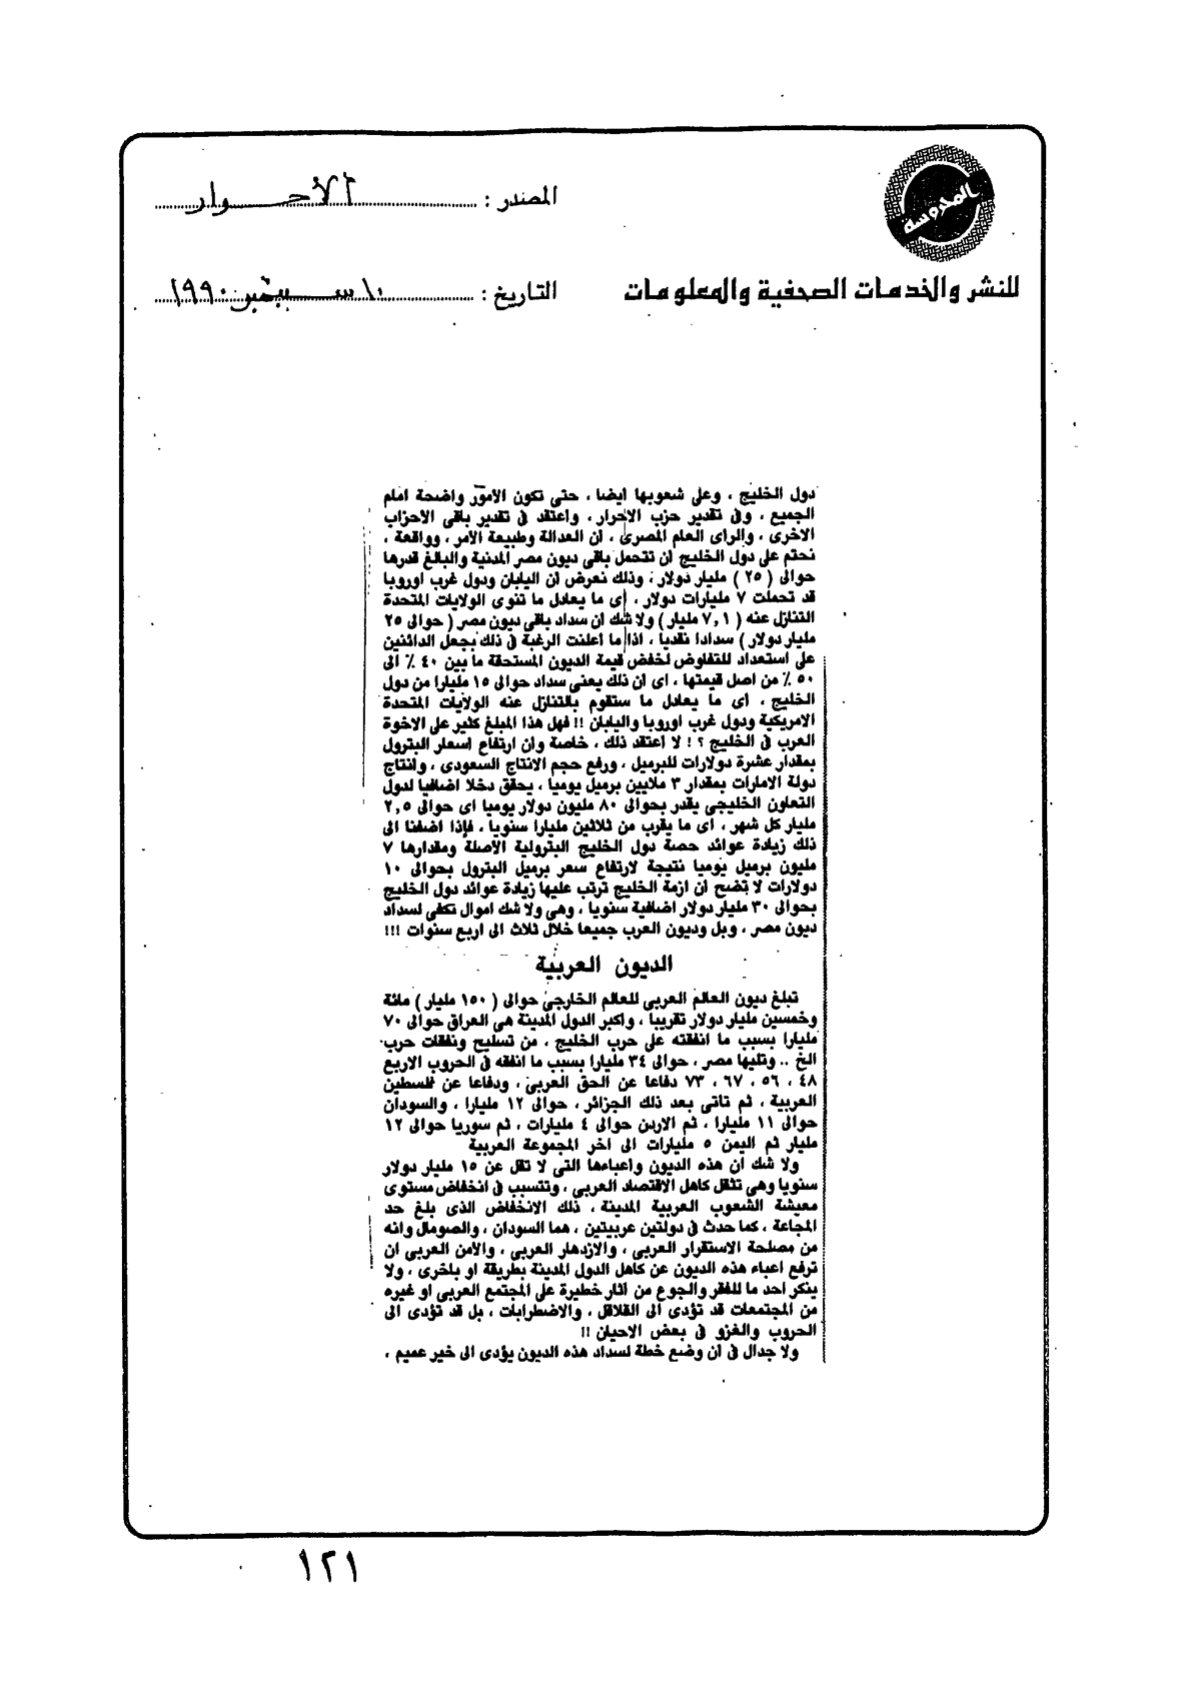 المحروسة
المصدر : الأحرار
للنشر والخدمات الصحفية والمعلومات
التاريخ : ١٠ سبتمبر ١٩٩٠
دول الخليج ، وعلى شعوبها ايضا ، حتى تكون الأمور واضحة امام
الجميع ، وفى تقدير حزب الاحرار ، واعتقد فى تقدير باقى الاحزاب
الاخرى ، والراى العام المصرى ، ان العدالة وطبيعة الأمر ، وواقعة ،
تحتم على دول الخليج ان تتحمل باقى ديون مصر المدنية والبالغ قدرها
حوالى ( ٢٥ ) مليار دولار ، وذلك بفرض ان اليابان ودول غرب اوروبا
قد تحملت ٧ مليارات دولار ، اى ما يعادل ما تنوى الولايات المتحدة
التنازل عنه ( ٧,١ مليار ) ولا شك ان سداد باقى ديون مصر ( حوالى ٢٥
مليار دولار ) سدادا نقديا ، اذا ما اعلنت الرغبة فى ذلك يجعل الدائنين
على استعداد للتفاوض لخفض قيمة الديون المستحقة ما بين ٤٠ ٪ الى
٥٠ ٪ من اصل قيمتها ، اى ان ذلك يعنى سداد حوالى ١٥ مليارا من دول
الخليج ، اى ما يعادل ما ستقوم بالتنازل عنه الولايات المتحدة
الامريكية ودول غرب اوروبا واليابان !! فهل هذا المبلغ كثير على الاخوة
العرب فى الخليج ؟ ! لا اعتقد ذلك ، خاصة وان ارتفاع اسعار البترول
بمقدار عشرة دولارات للبرميل ، ورفع حجم الانتاج السعودى ، وانتاج
دولة الامارات بمقدار ٣ ملايين برميل يوميا ، يحقق دخلا اضافيا لدول
التعاون الخليجى يقدر بحوالى ٨٠ مليون دولار يوميا اى حوالى ٢,٥
مليار كل شهر ، اى ما يقرب من ثلاثين مليارا سنويا ، فإذا اضفنا الى
ذلك زيادة عوائد حصة دول الخليج البترولية الأصلة ومقدارها ٧
مليون برميل يوميا نتيجة لارتفاع سعر برميل البترول بحوالى ١٠
دولارات لا تضح ان ازمة الخليج ترتب عليها زيادة عوائد دول الخليج
بحوالى ٣٠ مليار دولار اضافية سنويا ، وهى ولا شك اموال تكفى لسداد
ديون مصر ، وبل وديون العرب جميعا خلال ثلاث الى اربع سنوات !!!
الديون العربية
تبلغ ديون العالم العربى للعالم الخارجى حوالى ( ١٥٠ مليار ) مائة
وخمسين مليار دولار تقريبا ، واكبر الدول المدينة هى العراق حوالى ٧٠
مليارا بسبب ما انفقته على حرب الخليج ، من تسليح ونفقات حرب
الخ .. وتليها مصر ، حوالى ٣٤ مليارا بسبب ما انفقه فى الحروب الاربع
٤٨ ، ٥٦ ، ٦٧ ، ٧٣ دفاعا عن الحق العربى ، ودفاعا عن فلسطين
العربية ، ثم تاتى بعد ذلك الجزائر ، حوالى ١٢ مليارا ، والسودان
حوالى ١١ مليارا ، ثم الاردن حوالى ٤ مليارات ، ثم سوريا حوالى ١٢
مليار ثم اليمن ٥ مليارات الى اخر المجموعة العربية
ولا شك ان هذه الديون واعباءها التى لا تقل عن ١٥ مليار دولار
سنويا وهى تثقل كاهل الاقتصاد العربى ، وتتسبب فى انخفاض مستوى
معيشة الشعوب العربية المدينة ، ذلك الانخفاض الذى بلغ حد
المجاعة ، كما حدث فى دولتين عربيتين ، هما السودان ، والصومال وانه
من مصلحة الاستقرار العربى ، والازدهار العربى ، والأمن العربى ان
ترفع اعباء هذه الديون عن كاهل الدول المدينة بطريقة او باخرى ، ولا
ينكر احد ما للفقر والجوع من آثار خطيرة على المجتمع العربى او غيره
من المجتمعات قد تؤدى الى القلاقل ، والاضطرابات ، بل قد تؤدى الى
الحروب والغزو فى بعض الاحيان !!
ولا جدال فى ان وضع خطة لسداد هذه الديون يؤدى الى خير عميم ،
١٢١